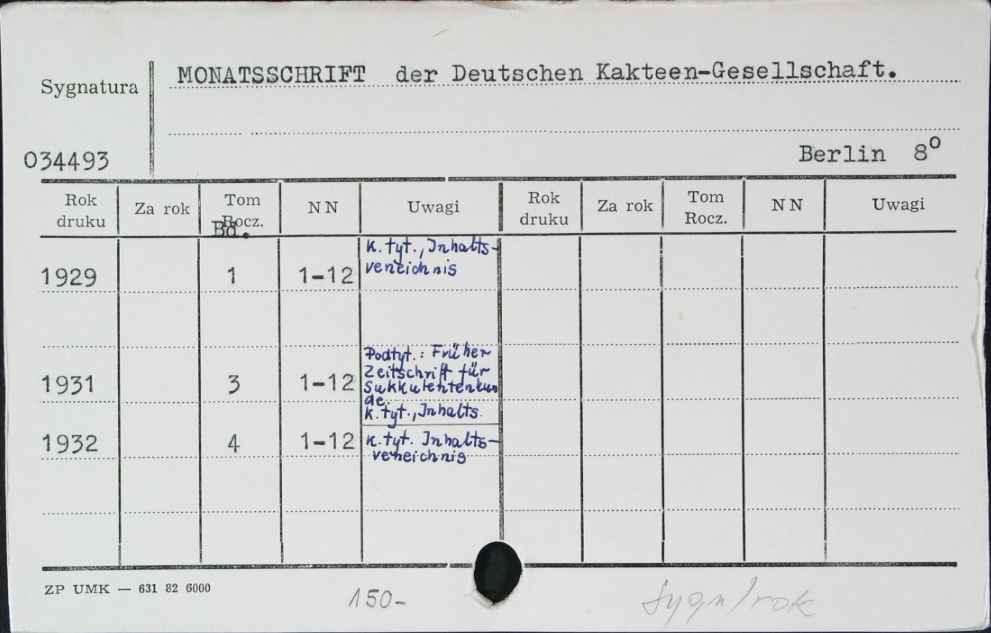 Sygnatura
MONATSSCHRIFT der Deutschen Kakteen-Gesellschaft.
034493
Berlin 8°
Rok druku Za rok Tom Rocz. NN Uwagi Rok druku Za rok Tom Rocz. NN Uwagi
Bd.
K. tyt., Inhalts-
1929 1 1-12 verzeichnis
Podtyt.: Früher
Zeitschrift für
1931 3 1-12 Sukkulentenkun
de.
K. tyt., Inhalts.
1932 4 1-12 K. tyt. Inhalts-
verzeichnis
ZP UMK — 631 82 6000
150-
Sygn/rok